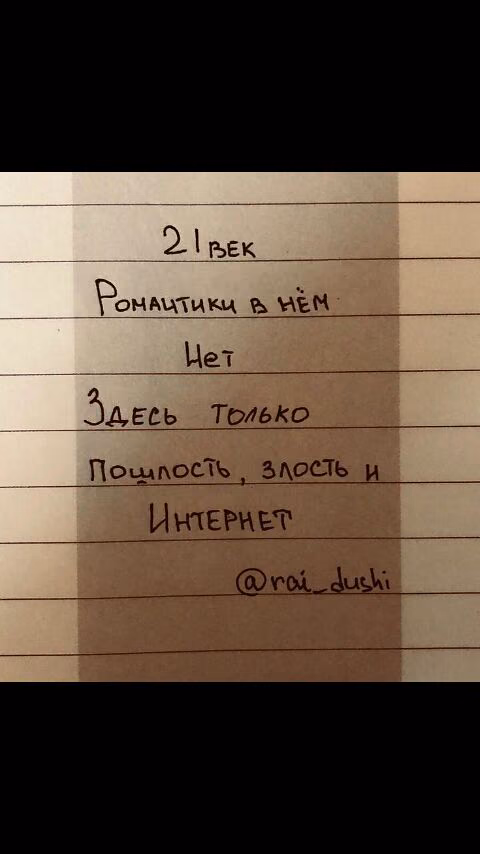 21 век
Романтики в нём
Нет
Здесь только
пошлость, злость и
Интернет
@rai_dushi